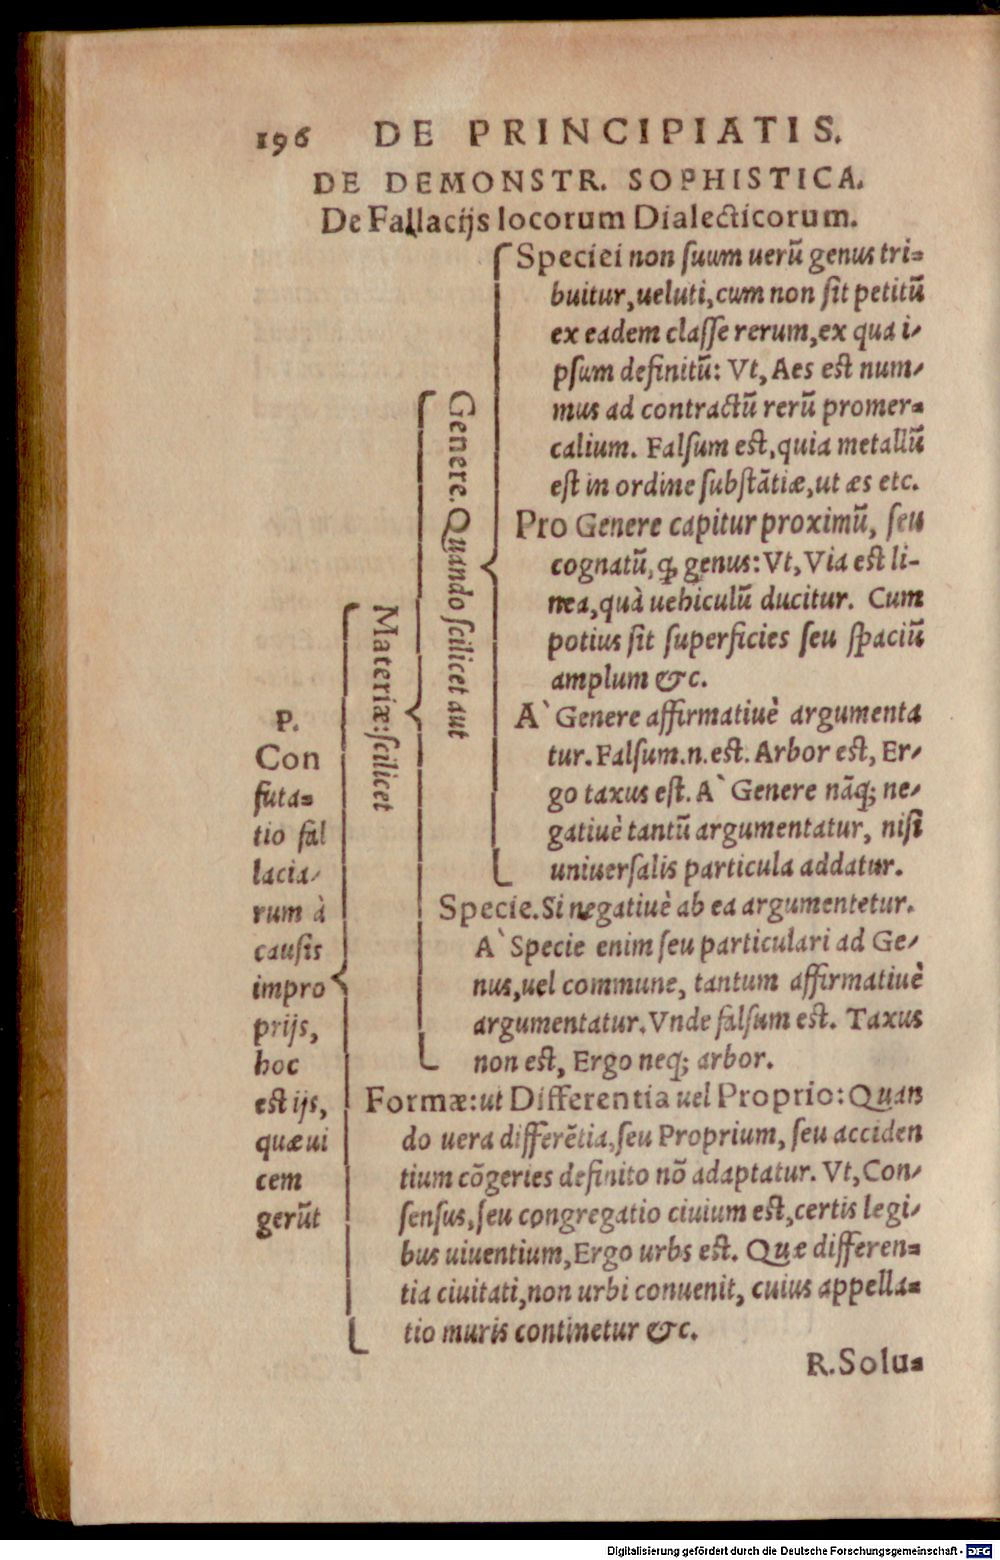 196 DE PRINCIPIATIS.
DE DEMONSTR. SOPHISTICA.
De Fallacijs locorum Dialecticorum.
P.
Con
futa=
tio fal
lacia/
rum à
causis
impro
prijs,
hoc
est ijs,
quæ ui
cem
gerũt
Materiæ: scilicet
Genere. Quando scilicet aut
Speciei non suum uerũ genus tri=
buitur, ueluti, cum non sit petitũ
ex eadem classe rerum, ex qua i/
psum definitũ: Vt, Aes est num/
mus ad contractũ rerũ promer=
calium. Falsum est, quia metallũ
est in ordine substãtiæ, ut æs etc.
Pro Genere capitur proximũ, seu
cognatũ, ꝙ genus: Vt, Via est li-
nea, quà uehiculũ ducitur. Cum
potius sit superficies seu spaciũ
amplum &c.
A` Genere affirmatiuè argumenta
tur. Falsum.n.est. Arbor est, Er/
go taxus est. A` Genere nãq; ne/
gatiuè tantũ argumentatur, nisi
uniuersalis particula addatur.
Specie. Si negatiuè ab ea argumentetur.
A` Specie enim seu particulari ad Ge/
nus, uel commune, tantum affirmatiuè
argumentatur. Vnde falsum est. Taxus
non est, Ergo neq; arbor.
Formæ: ut Differentia uel Proprio: Quan
do uera differẽtia, seu Proprium, seu acciden
tium cõgeries definito nõ adaptatur. Vt, Con/
sensus, seu congregatio ciuium est, certis legi/
bus uiuentium, Ergo urbs est. Quæ differen=
tia ciuitati, non urbi conuenit, cuius appella=
tio muris continetur &c.
R. Solu=
Digitalisierung gefördert durch die Deutsche Forschungsgemeinschaft - DFG